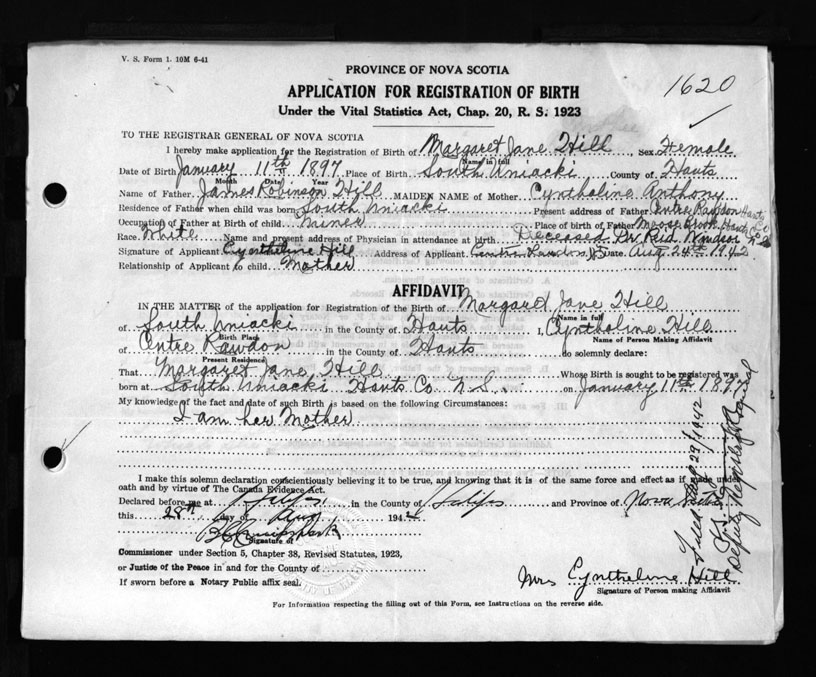 V. S. Form 1. 10M 6-41
PROVINCE OF NOVA SCOTIA
1620
APPLICATION FOR REGISTRATION OF BIRTH
Under the Vital Statistics Act, Chap. 20, R. S. 1923
TO THE REGISTRAR GENERAL OF NOVA SCOTIA
I hereby make application for the Registration of Birth of Margaret Jane Hill Sex Female
Name in full
Date of Birth January 11th 1897 Place of Birth South Uniacki County of Hants
Month Date Year
Name of Father James Robinson Hill MAIDEN NAME of Mother Cyntholine Anthony
Residence of Father when child was born South Uniacki Present address of Father Centre Rawdon Hants Co
Occupation of Father at Birth of child Miner Place of birth of Father Moose Brook Hants Co
Race White Name and present address of Physician in attendance at birth Deceased Dr Reid Windsor N.S.
Signature of Applicant Cyntheline Hill Address of Applicant Centre Rawdon NS Date Aug 24th 1942
Relationship of Applicant to child Mother
AFFIDAVIT
IN THE MATTER of the application for Registration of the Birth of Margaret Jane Hill
Name in full
of South Uniacki in the County of Hants I, Cyntholine Hill
Birth Place Name of Person Making Affidavit
of Centre Rawdon in the County of Hants do solemnly declare:
Present Residence
That Margaret Jane Hill Whose Birth is sought to be registered was
born at South Uniacki Hants Co. N.S. on January 11th 1897
My knowledge of the fact and date of such Birth is based on the following Circumstances:
I am her Mother
I make this solemn declaration conscientiously believing it to be true, and knowing that it is of the same force and effect as if made under
oath and by virtue of The Canada Evidence Act.
Declared before me at Halifax in the County of Halifax and Province of Nova Scotia
this 28th day of Aug 1942
Signature of
Commissioner under Section 5, Chapter 38, Revised Statutes, 1923,
or Justice of the Peace in and for the County of
If sworn before a Notary Public affix seal.
Mrs Cyntheline Hill
Signature of Person making Affidavit
For Information respecting the filling out of this Form, see Instructions on the reverse side.
Filed Aug 29/1942
Deputy Registrar General